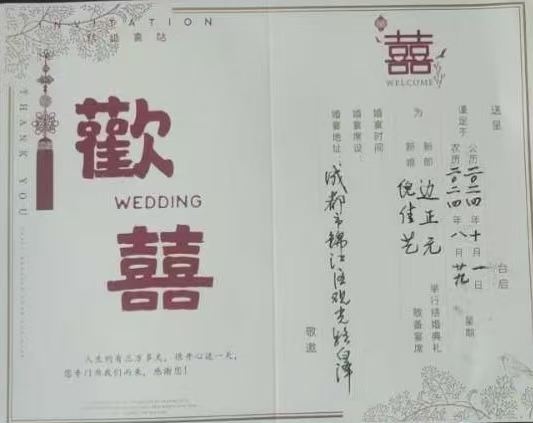 INVITATION
THANK YOU
歡
WEDDING
囍
人生约有三万多天，很开心这一天，
您专门为我们而来，感谢您！
囍
WELCOME
送呈
台启
谨定于
公历二〇二四年十月一日 星期
农历二〇二四年八月廿九
为
新郎 边正元
新娘 倪佳艺
举行结婚典礼
敬备宴席
婚宴时间
婚宴席设：
婚宴地址：成都市锦江区观光路
敬邀